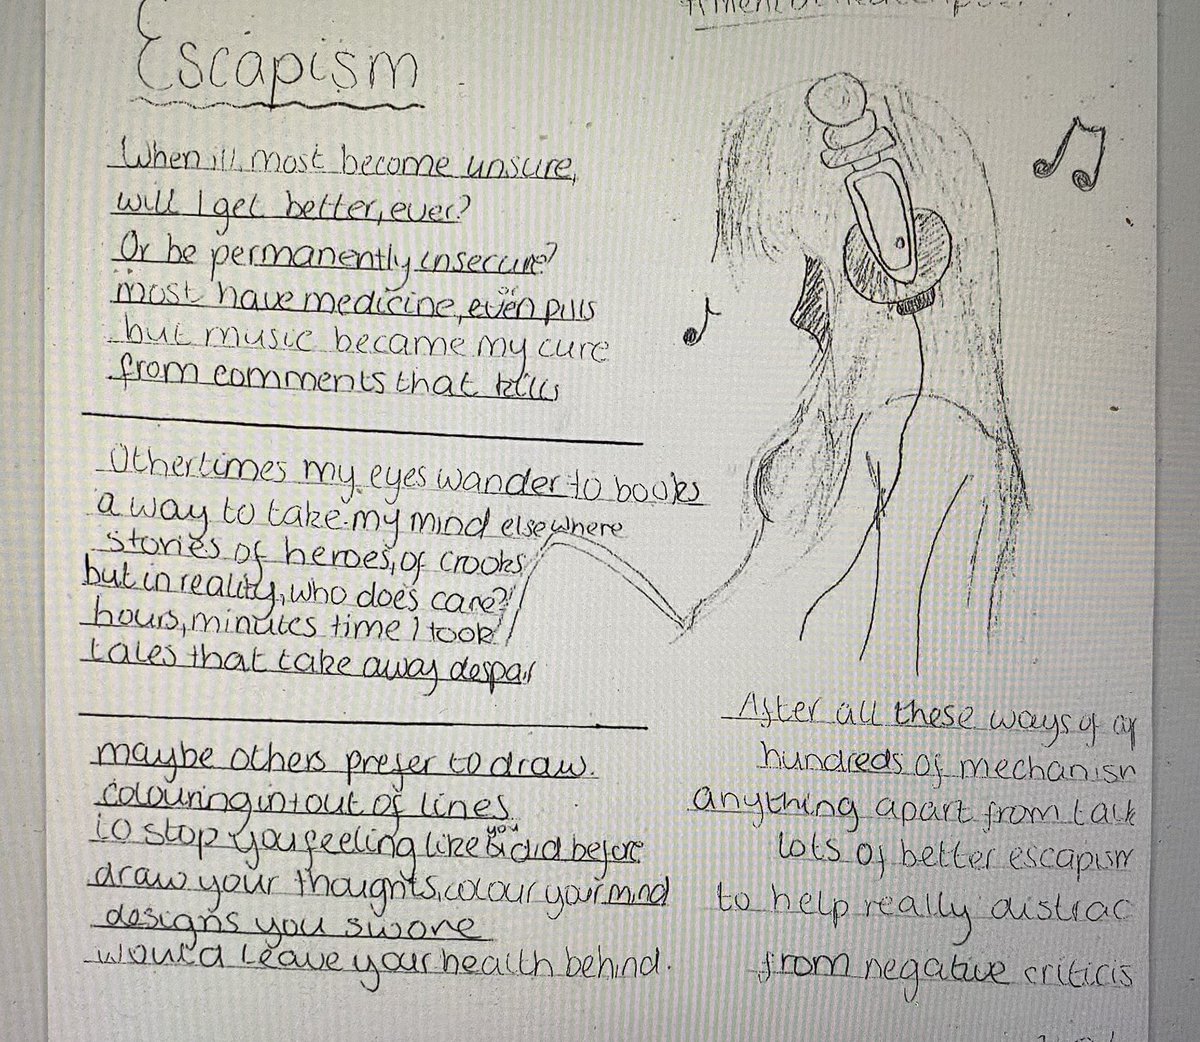 Escapism
When ill, most become unsure,
will I get better, ever?
Or be permanently insecure?
most have medicine, even or pills
but music became my cure
from comments that kills
Othertimes my eyes wander to books
a way to take my mind elsewhere
stories of heroes, of crooks
but in reality, who does care?
hours, minutes time I took
tales that take away despai
maybe others prefer to draw.
colouring in + out of lines
to stop you feeling like you did before
draw your thoughts, colour your mind
designs you swore
would leave your health behind.
After all these ways of
hundreds of mechanism
anything apart from talk
lots of better escapism
to help really distrac
from negative criticis